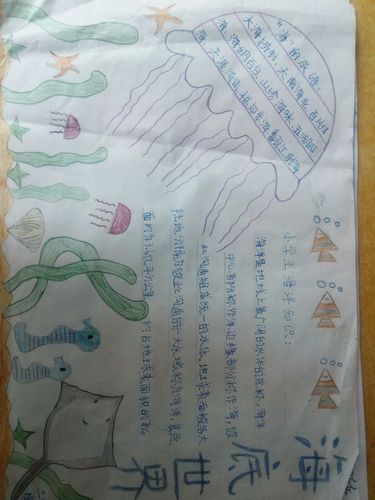 海底世界
“海”的成语：
大海捞针、天南海北、百川归
海、海纳百川、山珍海味、五湖四
海、天涯海角、福如东海、翻江倒海
小学生海洋知识：
海洋是地球上最广阔的水体的总称，海洋
中心部分称作洋边缘部分称作海，彼
此沟通组成统一的水体。地球表面被各大
陆地分隔为彼此沟通的广大水域称为海洋其总
面积约为3.6亿平方公里 约占地球表面积的71%。